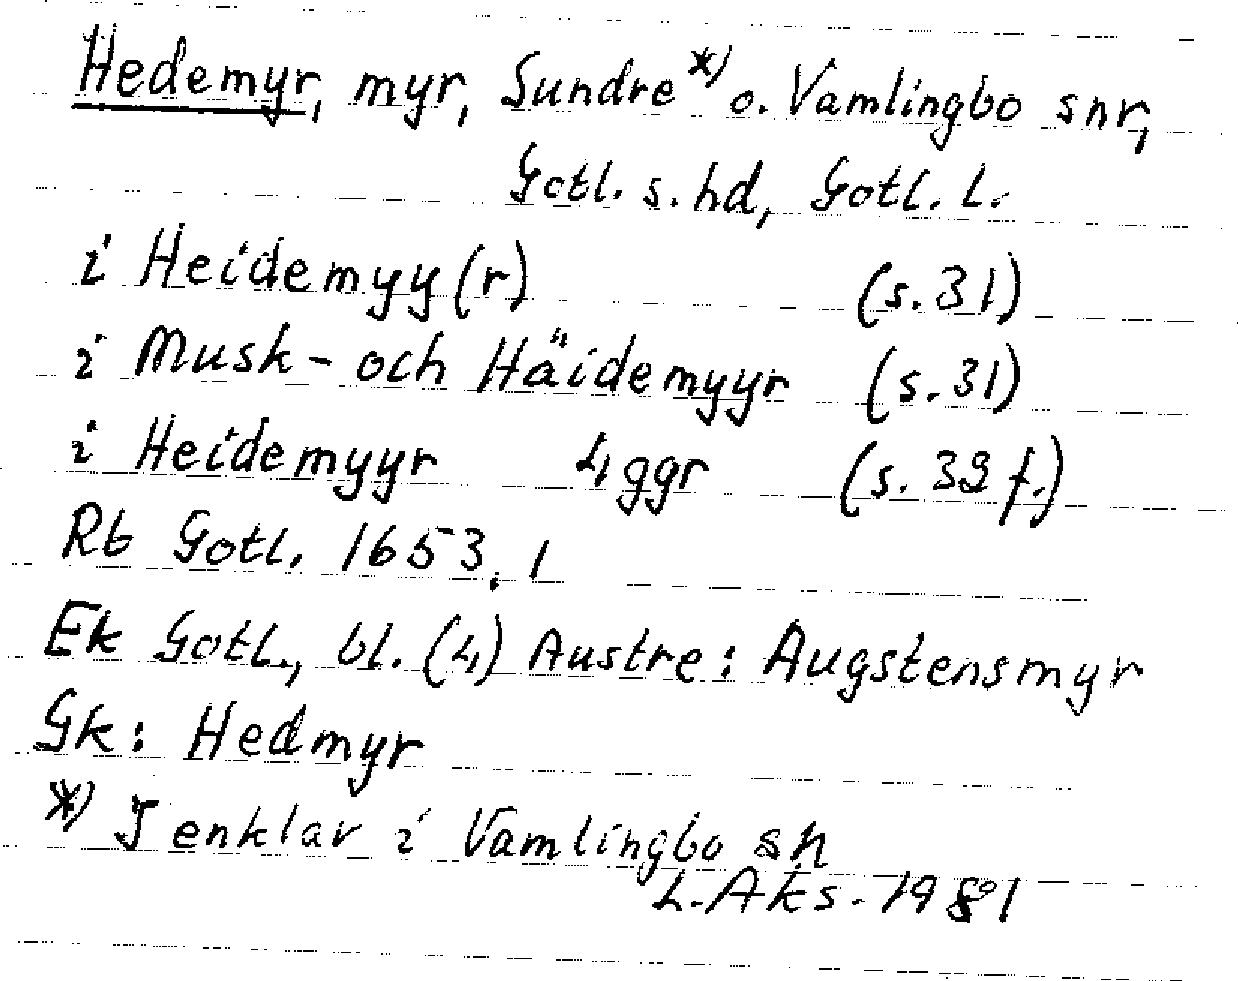 Hedemyr, myr, Sundre *) o. Vamlingbo snr,
Gotl. s. hd, Gotl. L.
i Heidemyy(r) (s. 31)
i Musk- och Häidemyyr (s. 31)
i Heidemyyr 4 ggr (s. 32 f.)
Rb Gotl. 1653. 1
Ek Gotl., bl. (4) Austre: Augstensmyr
Gk: Hedmyr
*) I enklav i Vamlingbo sn
L. Aks. 1981